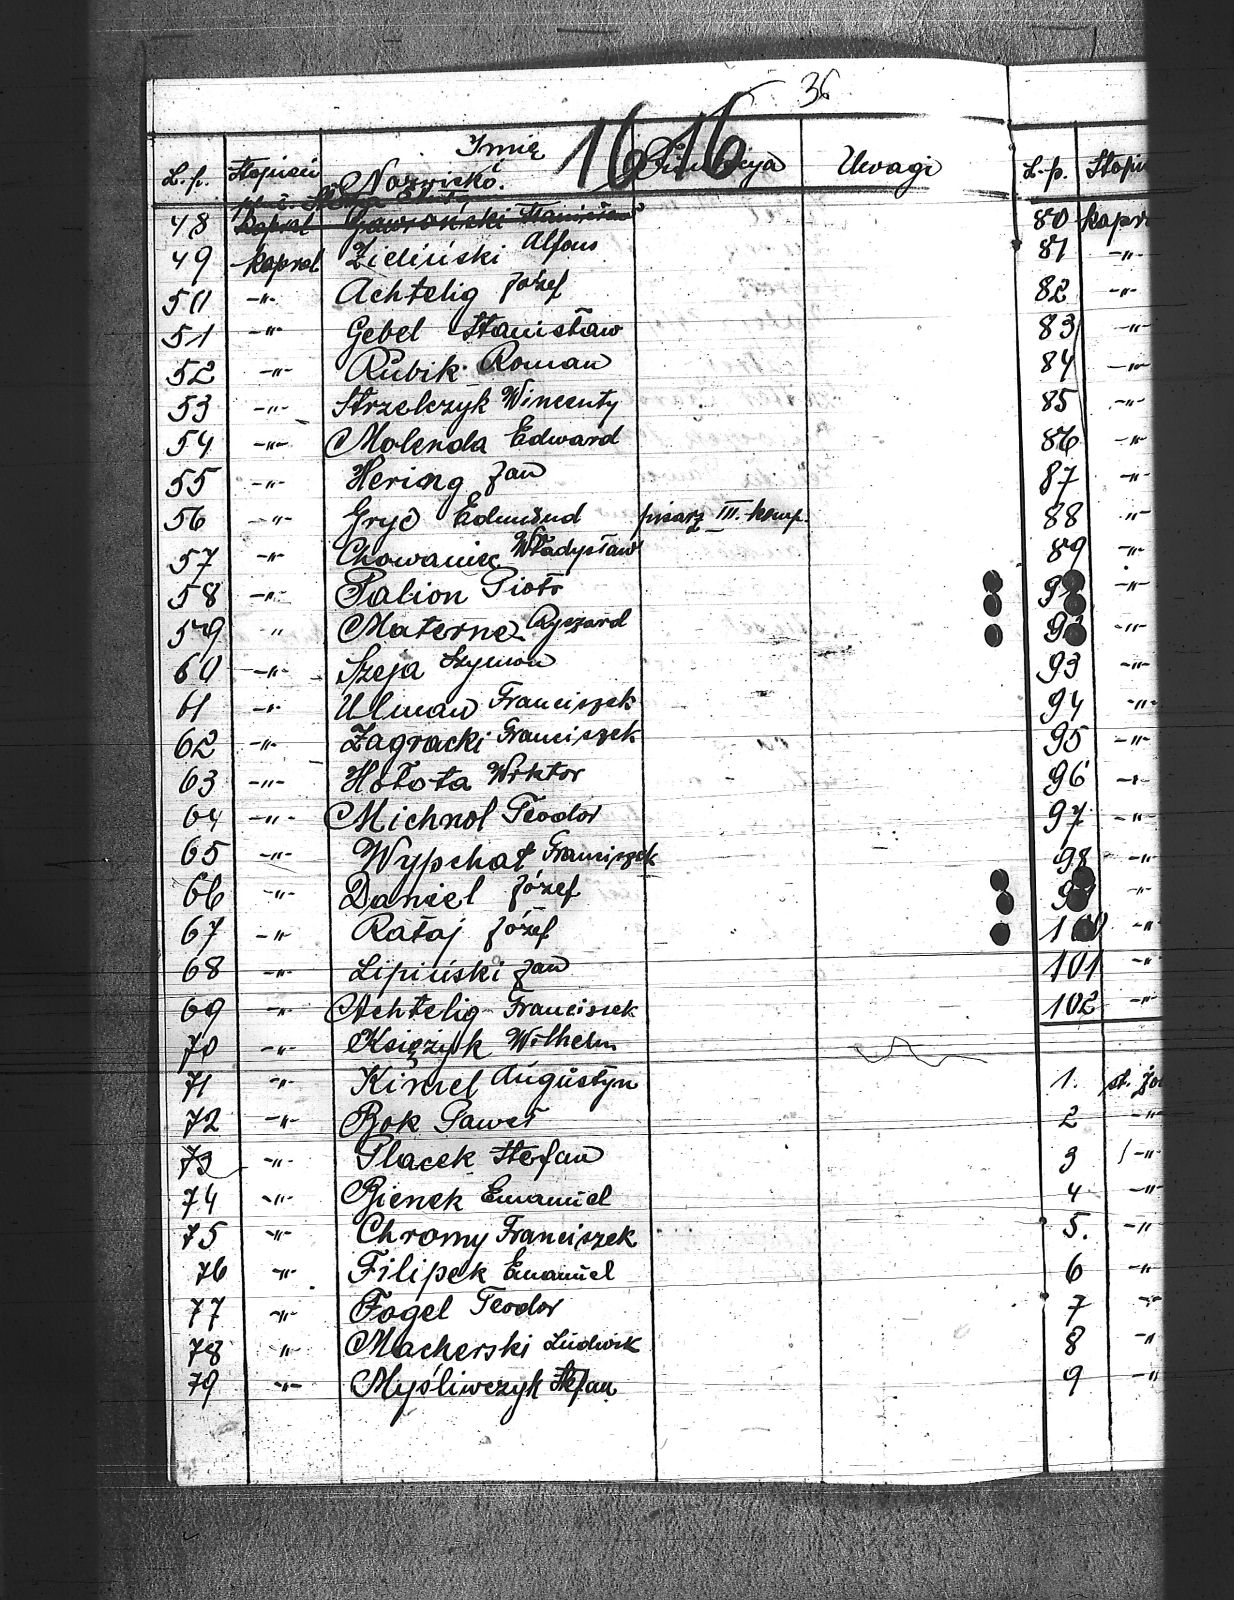 36
16 16
L.p. Stopień Imię i Nazwisko. Funkcja Uwagi
48 Kapral Gawroński Stanisław
49 kapral Zieliński Alfons
50 -"- Achtelig Józef
51 -"- Gebel Stanisław
52 -"- Rubik Roman
53 -"- Strzelczyk Wincenty
54 -"- Molenda Edward
55 -"- Hering Jan
56 -"- Gryc Edmund pisarz III. komp.
57 -"- Chowaniec Władysław
58 -"- Palion Piotr
59 " Materne Ryszard
60 -"- Szeja Szymon
61 -"- Ulman Franciszek
62 -"- Zagracki Franciszek
63 -"- Hołota Wiktor
64 -"- Michnol Teodor
65 -"- Wypchał Franciszek
66 -"- Daniel Józef
67 -"- Rataj Józef
68 -"- Lipiński Jan
69 -"- Achtelig Franciszek
70 -"- Księżyk Wilhelm
71 -"- Kimel Augustyn
72 -"- Bok Paweł
73 -"- Placek Stefan
74 -"- Bienek Emanuel
75 -"- Chromy Franciszek
76 -"- Filipek Emanuel
77 -"- Fogel Teodor
78 " Macherski Ludwik
79 -"- Myśliwczyk Stefan
L.p. Stopi
80 kapr
81 -"-
82 -"-
83 -"-
84 -"-
85 -"-
86 -"-
87 -"-
88 -"-
89 -"-
93 -"-
94 -"-
95 -"-
96 -"-
97 -"-
98 -"-
100 -"-
101 -"-
102 -"-
1. st. żo
2 -"-
3 -"-
4 -"-
5. -"-
6 -"-
7 -"-
8 -"
9 -"